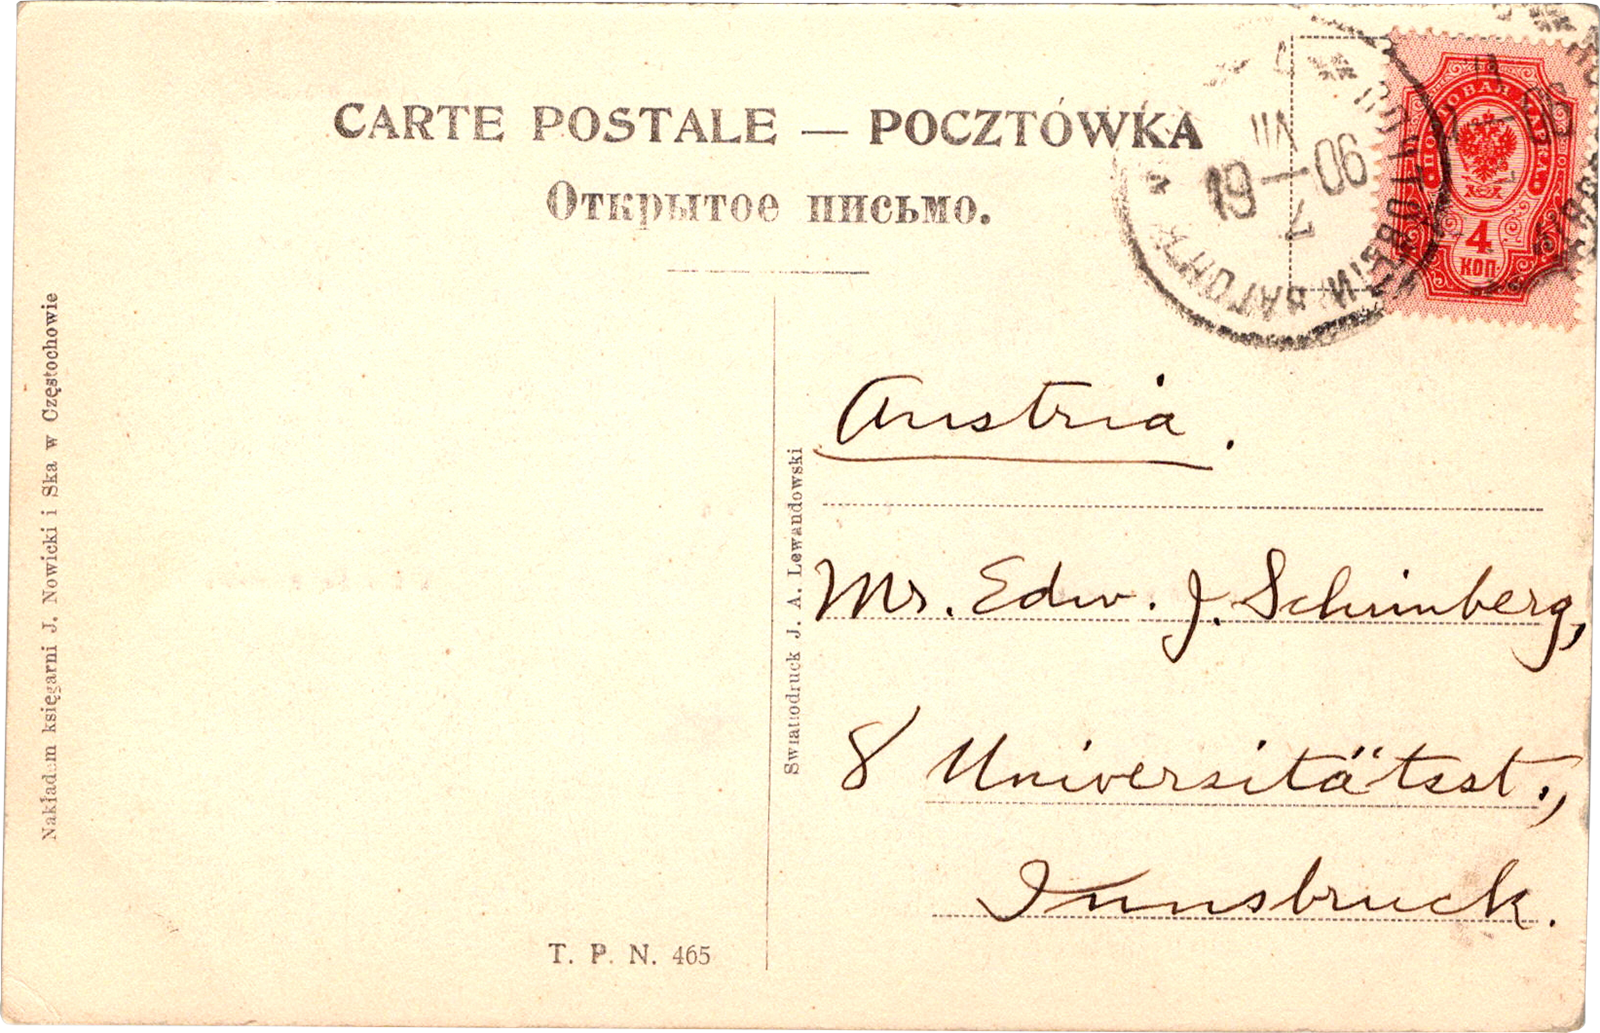 CARTE POSTALE — POCZTÓWKA
Открытое письмо.
ПОЧТОВАЯ МАРКА
4
КОП.
VII
19—06
7
ПОЧТОВЫЙ ВАГОНЪ
06
Austria.
Mr. Edw. J. Schimberg,
8 Universitätsst.,
Innsbruck.
Nakładem księgarni J. Nowicki i Ska w Częstochowie
Swiatłodruck J. A. Lewandowski
T. P. N. 465